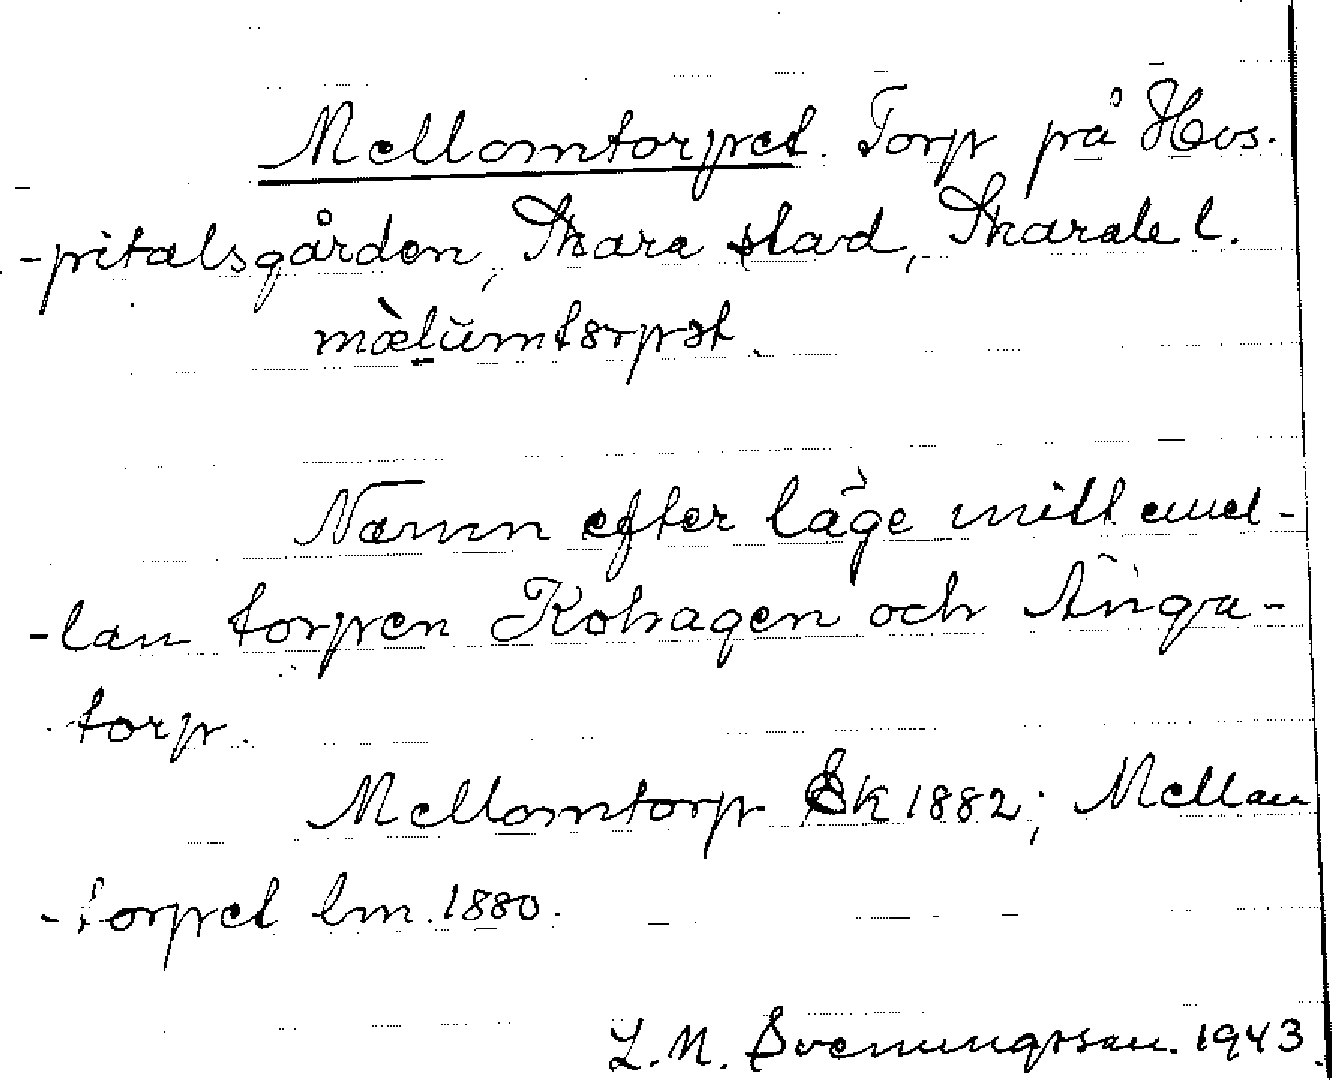 Mellomtorpet. Torp på Hos-
-pitalsgården, Skara stad, Skarale l.
mæ̀lŭmtorpət.
Namn efter läge mitt emel-
-lan torpen Kohagen och Änga-
torp.
Mellomtorp Ek 1882; Mellan
-torpet lm. 1880.
L. M. Svenungsson. 1943.